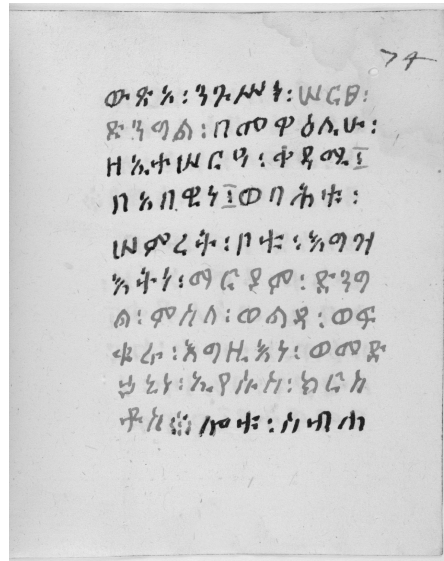 ንጉሥነ፡ሠርፀ፡
ድንግል፡በመዋዕሊሁ፡
ዘኢተሠርዓ፡ቀዳሚ፤
በአበዊነ፤ወባሕቱ፡
ሠምረት፡ቦቱ፡እግዝ
እትነ፡ማርያም፡ድንግ
ል፡ምስለ፡ወልዳ፡ወፍ
ቁራ፡እግዚእነ፡ወመድ
ኃኒነ፡ኢየሱስ፡ክርስ
ቶስ፨ሎቱ፡ስብሐ